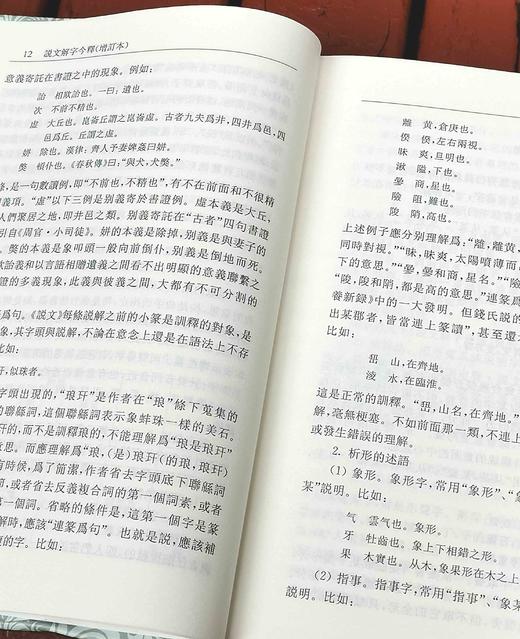 12 説文解字今釋(增訂本)
意義寄託在書證之中的現象。例如:
詒 相欺詒也。一曰:遺也。
次 不前不精也。
虛 大丘也。崐崙丘謂之崐崙虛。古者九夫爲井,四井爲邑,四
邑爲丘。丘謂之虛。
姘 除也。漢律:齊人予妻婢姦曰姘。
獘 頓仆也。《春秋傳》曰:“與犬,犬獘。”
條,是一句數讀例,即“不前也,不精也”,有不在前面和不很精
義項。“虛”以下三例是别義寄於書證例。虛本義是大丘,
人們聚居之地,即井邑之類。别義寄託在“古者”四句書證
引自《周官·小司徒》。姘的本義是除掉,别義是與妻子的
。獘的本義是象叩頭一般向前倒仆,别義是倒地而死。
欺詒義和以言語相贈遺義之間看不出明顯的意義聯繫之
證的多義現象,此義與彼義之間,大都有不可分割的
爲句。《説文》每條説解之前的小篆是訓釋的對象,是
象,其字頭與説解,不論在意念上還是在語法上不存
比如:
玕,似珠者。
字頭出現的,“琅玕”是作者在“琅”條下蒐集的
的聯緜詞,這個聯緜詞表示象蚌珠一樣的美石。
玕的,而不是訓釋琅的,不能理解爲“琅是琅玕”
意思。而應理解爲“琅,(是)琅玕(的琅,琅玕)
有時候,爲了節潔,作者省去字頭底下聯緜詞
節,或者省去反義複合詞的第一個詞素,或者
第一個詞。省略的條件是,這第一個字是篆
解時,應該“連篆爲句”。也就是説,應該補
復的字。比如:
離 黄,倉庚也。
傒 傒,左右兩視。
昧 爽,旦明也。
湫 隘,下也。
曑 商,星也。
險 阻,難也。
陵 陗,高也。
上述例子應分别理解爲:“離,離黄,
同時對視。”“昧,昧爽,太陽噴薄而
下的意思。”“曑,曑和商,星名。”“險
“陵,陵和陗,都是高的意思。”連篆爲
養新録》中的一大發明。但錢氏説的
出某部者,皆當連上篆讀”,甚至還
比如:
𡶐 山,在齊地。
淩 水,在臨淮。
這是正常的訓釋。“𡶐,山名,在齊地。”
解,毫無梗塞。不如前面那一類,不連上
或發生錯誤的理解。
2. 析形的述語
(1) 象形。象形字,常用“象形”、“
某”説明。比如:
气 雲气也。象形。
牙 牡齒也。象上下相錯之形。
果 木實也。从木,象果形在木之上
(2) 指事。指事字,常用“指事”、“象某
説明。比如: